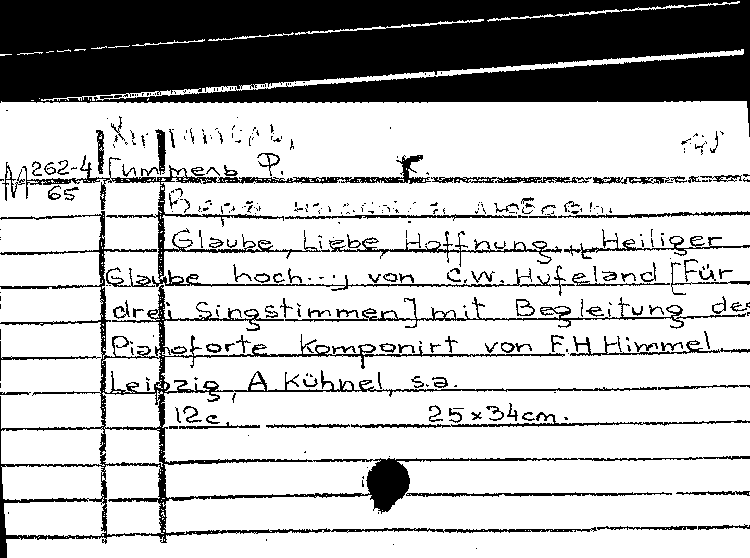 Химмель,
М 262-4
65
Гиммель Ф. К.
Вера, надежда, любовь.
Glaube, Liebe, Hoffnung... [Heiliger
Glaube hoch...] von C.W. Hufeland [Für
drei Singstimmen] mit Begleitung des
Pianoforte komponirt von F.H Himmel
Leipzig, A Kühnel, s.a.
12с. 25×34cm.